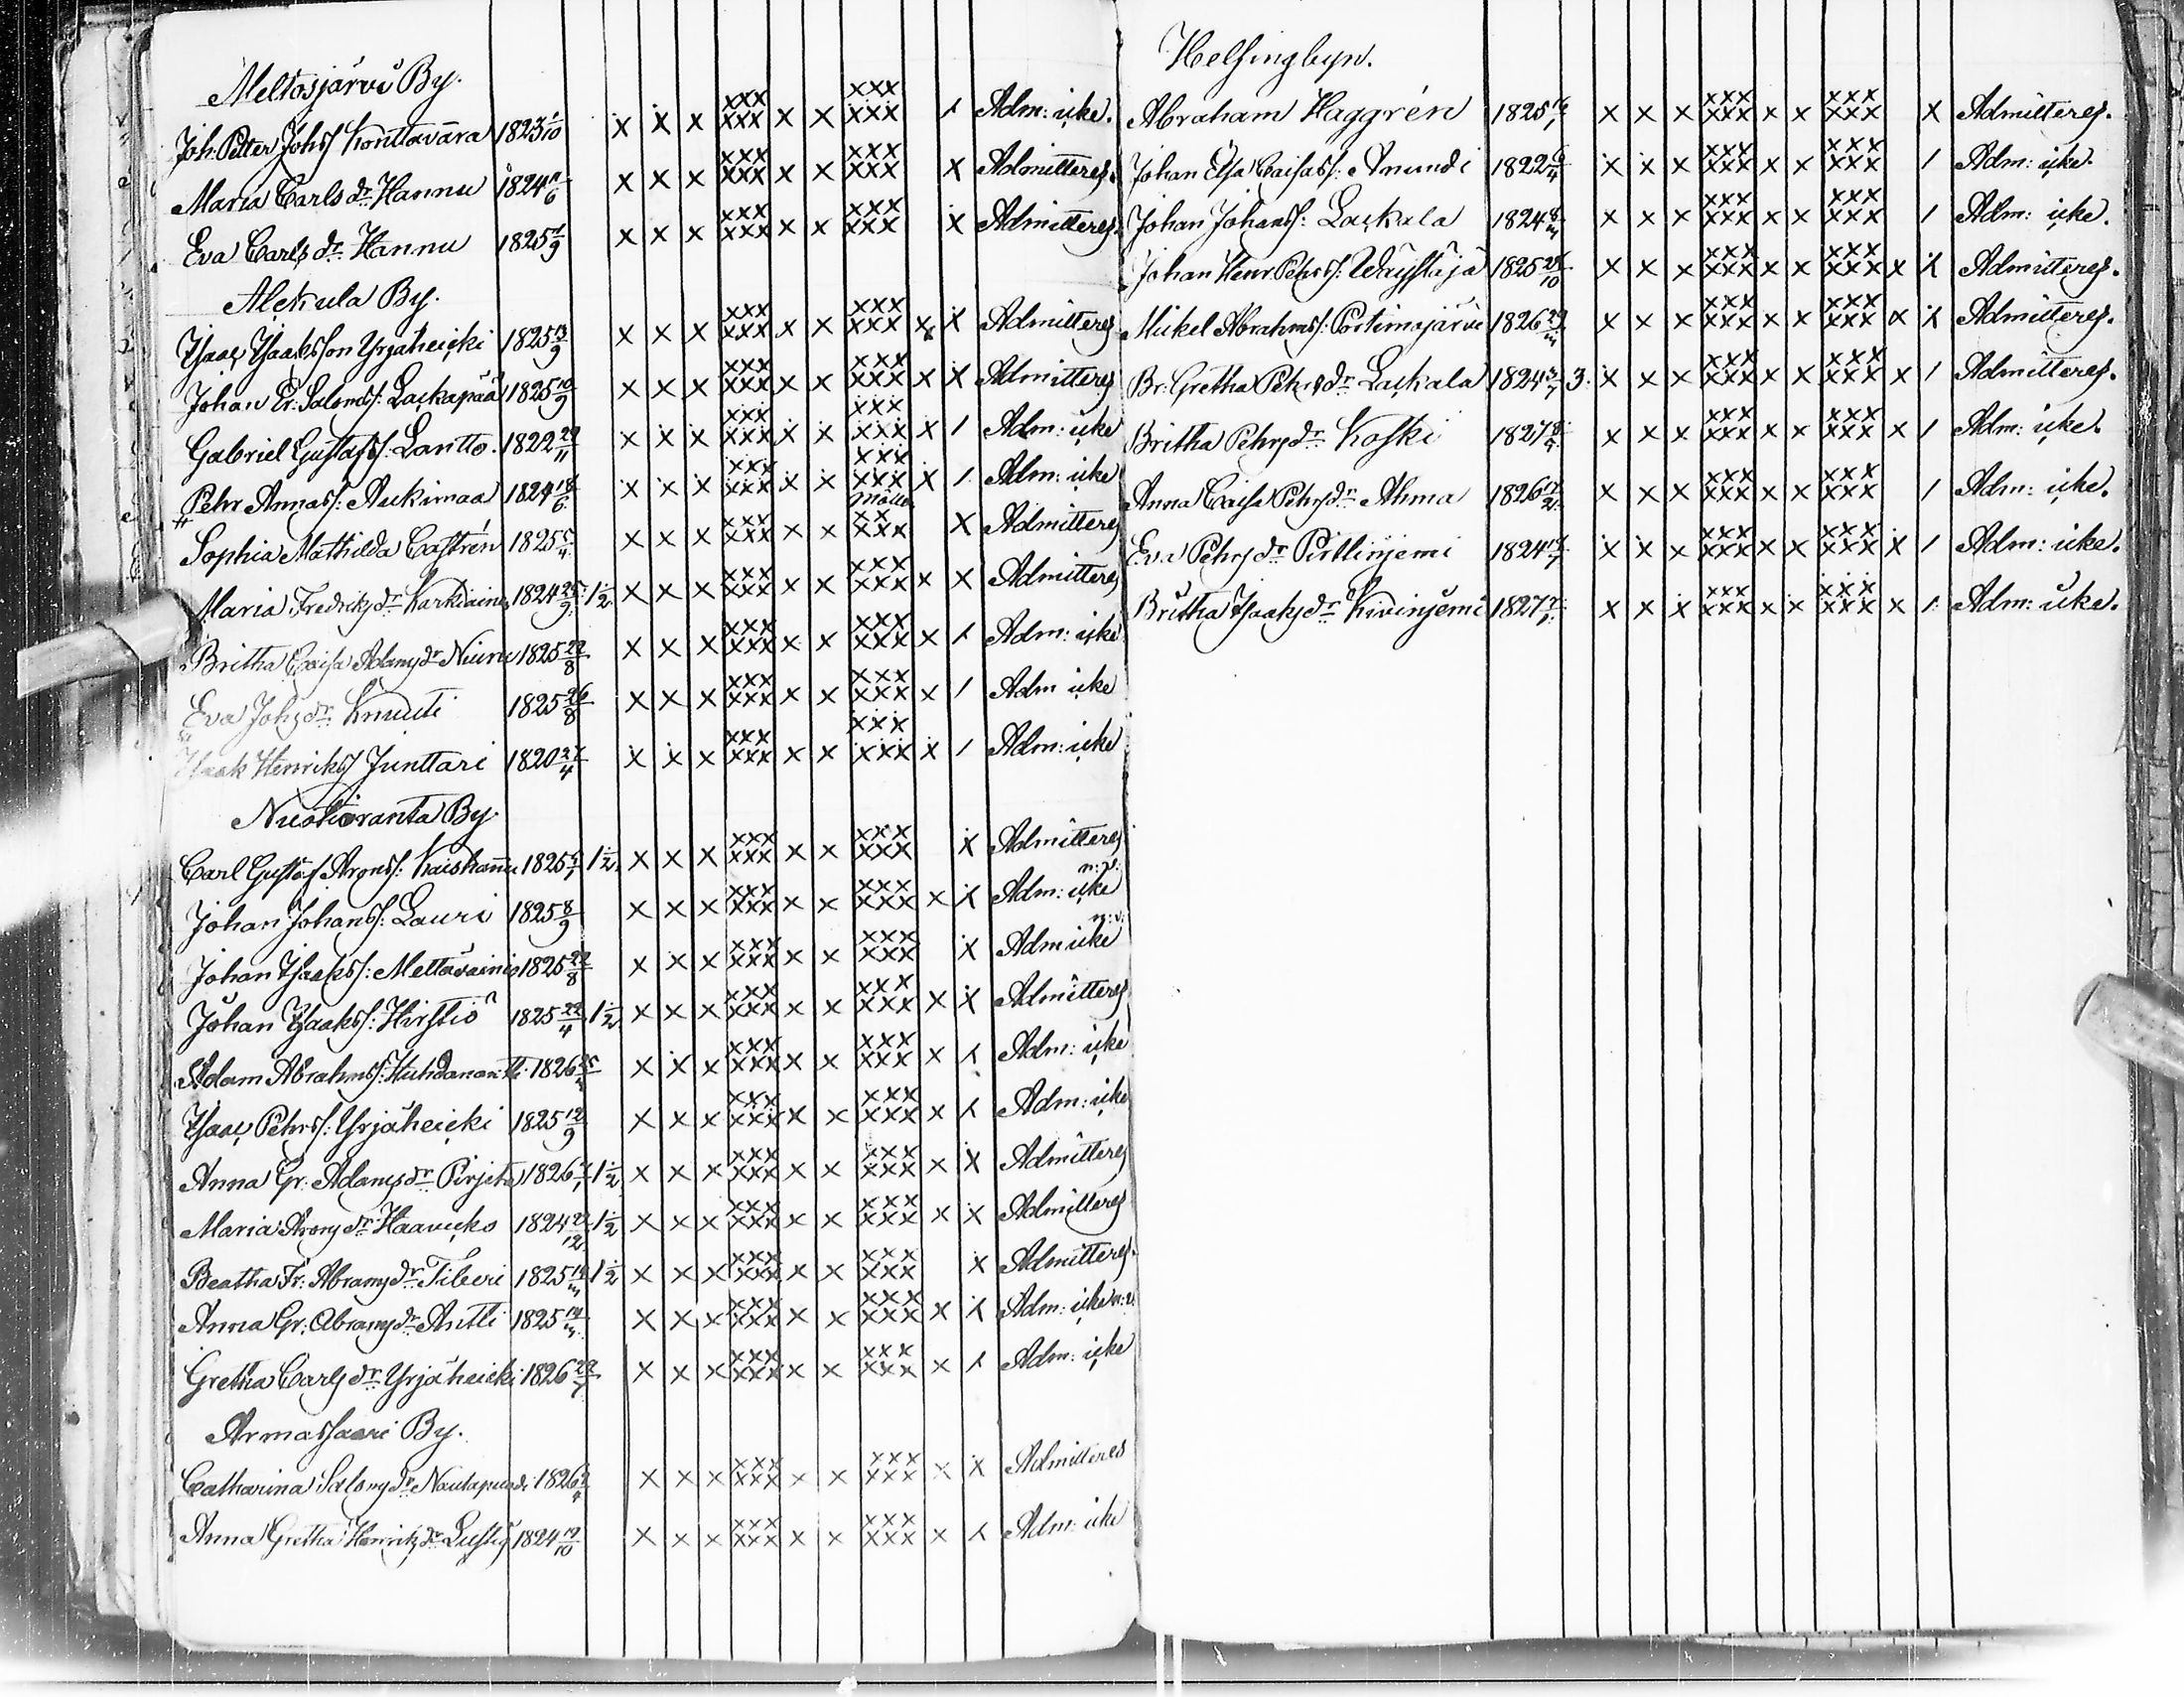 Meltosjärvi By.
Joh: Petter Johsſ Konttavara 1823 1/10 x x x xxx xxx x x xxx xxx 1 Adm: icke.
Maria Carls dr Hannu 1824 11/6 x x x xxx xxx x x xxx xxx x Admitteres.
Eva Carls dr Hannu 1825 1/9 x x x xxx xxx x x xxx xxx x Admitteres.
Alckula By.
Isaac Isaaksson Yrjäheicki 1825 13/9 x x x xxx xxx x x xxx xxx x x Admitteres
Johan Er: Salomsſ: Lackapää 1825 10/9 x x x xxx xxx x x xxx xxx x x Admitteres
Gabriel Gustafsſ: Lantto. 1822 29/11 x x x xxx xxx x x xxx xxx x 1 Adm: icke
Pehr Annasſ: Aukimaa 1824 18/6 x x x xxx xxx x x xxx xxx x 1 Adm: icke
Sophia Mathilda Castrén 1825 5/4 x x x xxx xxx x x xx xxx x Admitteres
Maria Fredriks dr 1824 25/9 1 1/2 x x x xxx xxx x x xxx xxx x x Admitteres
Britha Caisa Adams dr 1825 22/8 x x x xxx xxx x x xxx xxx x 1 Adm: icke
Eva Johs dr Knuuti 1825 26/8 x x x xxx xxx x x xxx xxx x 1 Adm icke
Isaak Henriksſ Junttari 1820 27/4 x x x xxx xxx x x xxx xxx x 1 Adm: icke
Nuotioranta By.
Carl Gustaf Aronsſ: 1825 1 1/2 x x x xxx xxx x x xxx xxx x Admitteres
Johan Johansſ: Lauri 1825 8/9 x x x xxx xxx x x xxx xxx x x Adm: icke n: v:
Johan Isaksſ: Mettävainio 1825 22/8 x x x xxx xxx x x xxx xxx x Adm icke n: v:
Johan Isaaksſ: Hirstiö 1825 22/4 1 1/2 x x x xxx xxx x x xxx xxx x x Admitteres
Adam Abrahmsſ: Huhdanantti 1826 x x x xxx xxx x x xxx xxx x 1 Adm: icke
Isaac Pehrsſ: Yrjäheicki 1825 12/9 x x x xxx xxx x x xxx xxx x 1 Adm: icke
Anna Gr: Adams dr 1826 1 1/2 x x x xxx xxx x x xxx xxx x x Admitteres
Maria Arons dr Haarucko 1824 22/12 1 1/2 x x x xxx xxx x x xxx xxx x x Admitteres
Beatha Fr: Abrams dr Tiberi 1825 1 1/2 x x x xxx xxx x x xxx xxx x Admitteres.
Anna Gr: Abrams dr Antti 1825 x x x xxx xxx x x xxx xxx x 1 Adm: icke n: v:
Gretha Carls dr Yrjäheicki 1826 22/7 x x x xxx xxx x x xxx xxx x 1 Adm: icke
Armassaari By.
Catharina Saloms dr 1826 x x x xxx xxx x x xxx xxx x x Admitteres
Anna Gretha Henriks dr Lustig 1824 19/10 x x x xxx xxx x x xxx xxx x 1 Adm: icke
Helsingbyn.
Abraham Haggrén 1825 x x x xxx xxx x x xxx xxx x Admitteres.
Johan Elsa Caisasſ: Anundi 1822 x x x xxx xxx x x xxx xxx 1 Adm: icke.
Johan Johansſ: Lackala 1824 x x x xxx xxx x x xxx xxx 1 Adm: icke.
Johan Henr: Pehrsſ: Wäystäjä 1825 28/10 x x x xxx xxx x x xxx xxx x x Admitteres.
Mickel Abrahmsſ: Portimojärvi 1826 x x x xxx xxx x x xxx xxx x x Admitteres.
Br: Gretha Pehrs dr Lackala 1824 3. x x x xxx xxx x x xxx xxx x 1 Admitteres.
Britha Pehrs dr Koski 1827 x x x xxx xxx x x xxx xxx x 1 Adm: icke.
Anna Caisa Pehrs dr Ahma 1826 x x x xxx xxx x x xxx xxx 1 Adm: icke.
Eva Pehrs dr Pirttiniemi 1824 x x x xxx xxx x x xxx xxx x 1 Adm: icke.
Britha Isaaks dr Kiviniemi 1827 x x x xxx xxx x x xxx xxx x 1 Adm: icke.